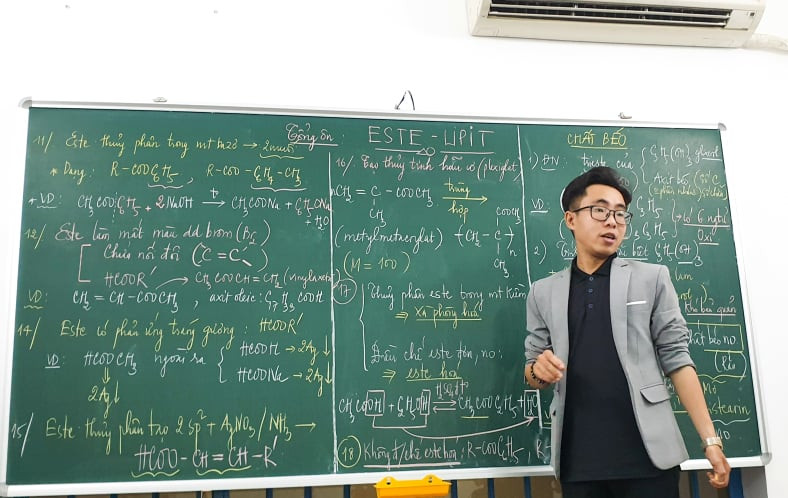 Tổng ôn: ESTE - LIPIT
11/ Este thuỷ phân trong mt bazơ → 2 muối
* Dạng: R-COOC6H5, R-COO-C6H4-CH3
* VD: CH3COOC6H5 + 2NaOH → CH3COONa + C6H5ONa + H2O
12/ Este làm mất màu dd brom (Br2)
Chứa nối đôi (C=C)
HCOOR'
CH3COOCH=CH2 (vinylaxetat)
VD: CH2=CH-COOCH3, axit oleic: C17H33COOH
14/ Este có phản ứng tráng gương: HCOOR'
VD: HCOOCH3 ngoài ra
HCOOH → 2Ag↓
HCOONa → 2Ag↓
2Ag↓
15/ Este thuỷ phân tạo 2 sp + AgNO3/NH3 →
HCOO-CH=CH-R'
16/ Tạo thuỷ tinh hữu cơ (plexiglat)
nCH2=C-COOCH3 trùng hợp
CH3
COOCH3
(metylmetacrylat) (CH2-C)n
CH3
(M=100)
17
Thuỷ phân este trong mt kiềm
⇒ xà phòng hoá
Điều chế este đơn, no:
⇒ este hoá
CH3COOH + C2H5OH ⇌ CH3COOC2H5 + H2O
18 Không đ/chế este hoá: R-COOC6H5,
CHẤT BÉO
1) ĐN: trieste của
C3H5(OH)3 glixerol
Axit béo
VD:
6 ng.tử
Oxi
2)
biệt C3H5(OH)3
làm
bảo quản
chất béo no
(Rắn)
Mỡ